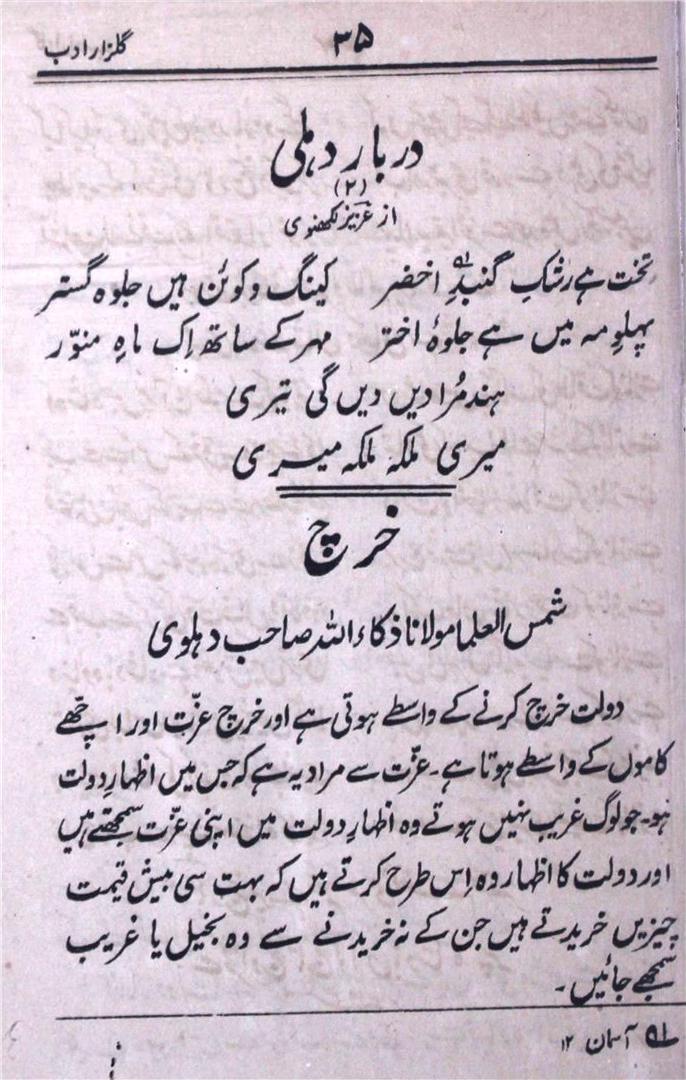 گلزار ادب ۳۵
دربار دہلی
(۲)
از عزیز لکھنوی
تخت ہے رشکِ گنبدِ لہ اخضر کینگ و کوئن ہیں جلوہ گستر
پہلوِ مہ میں ہے جلوۂ اختر مہر کے ساتھ اِک ماہِ منوّر
ہند مُرادیں دیں گی تیری
میری ملکہ ملکہ میری
خرچ
شمس العلما مولانا ذکاء اللہ صاحب دہلوی
دولت خرچ کرنے کے واسطے ہوتی ہے اور خرچ عزّت اور اچھّے
کاموں کے واسطے ہوتا ہے۔ عزّت سے مراد یہ ہے کہ جس میں اظہارِ دولت
ہو۔ جو لوگ غریب نہیں ہوتے وہ اظہارِ دولت میں اپنی عزّت سمجھتے ہیں
اور دولت کا اظہار وہ اِس طرح کرتے ہیں کہ بہت سی بیش قیمت
چیزیں خریدتے ہیں جن کے نہ خریدنے سے وہ بخیل یا غریب
سمجھے جائیں۔
لہ آسمان ۱۲